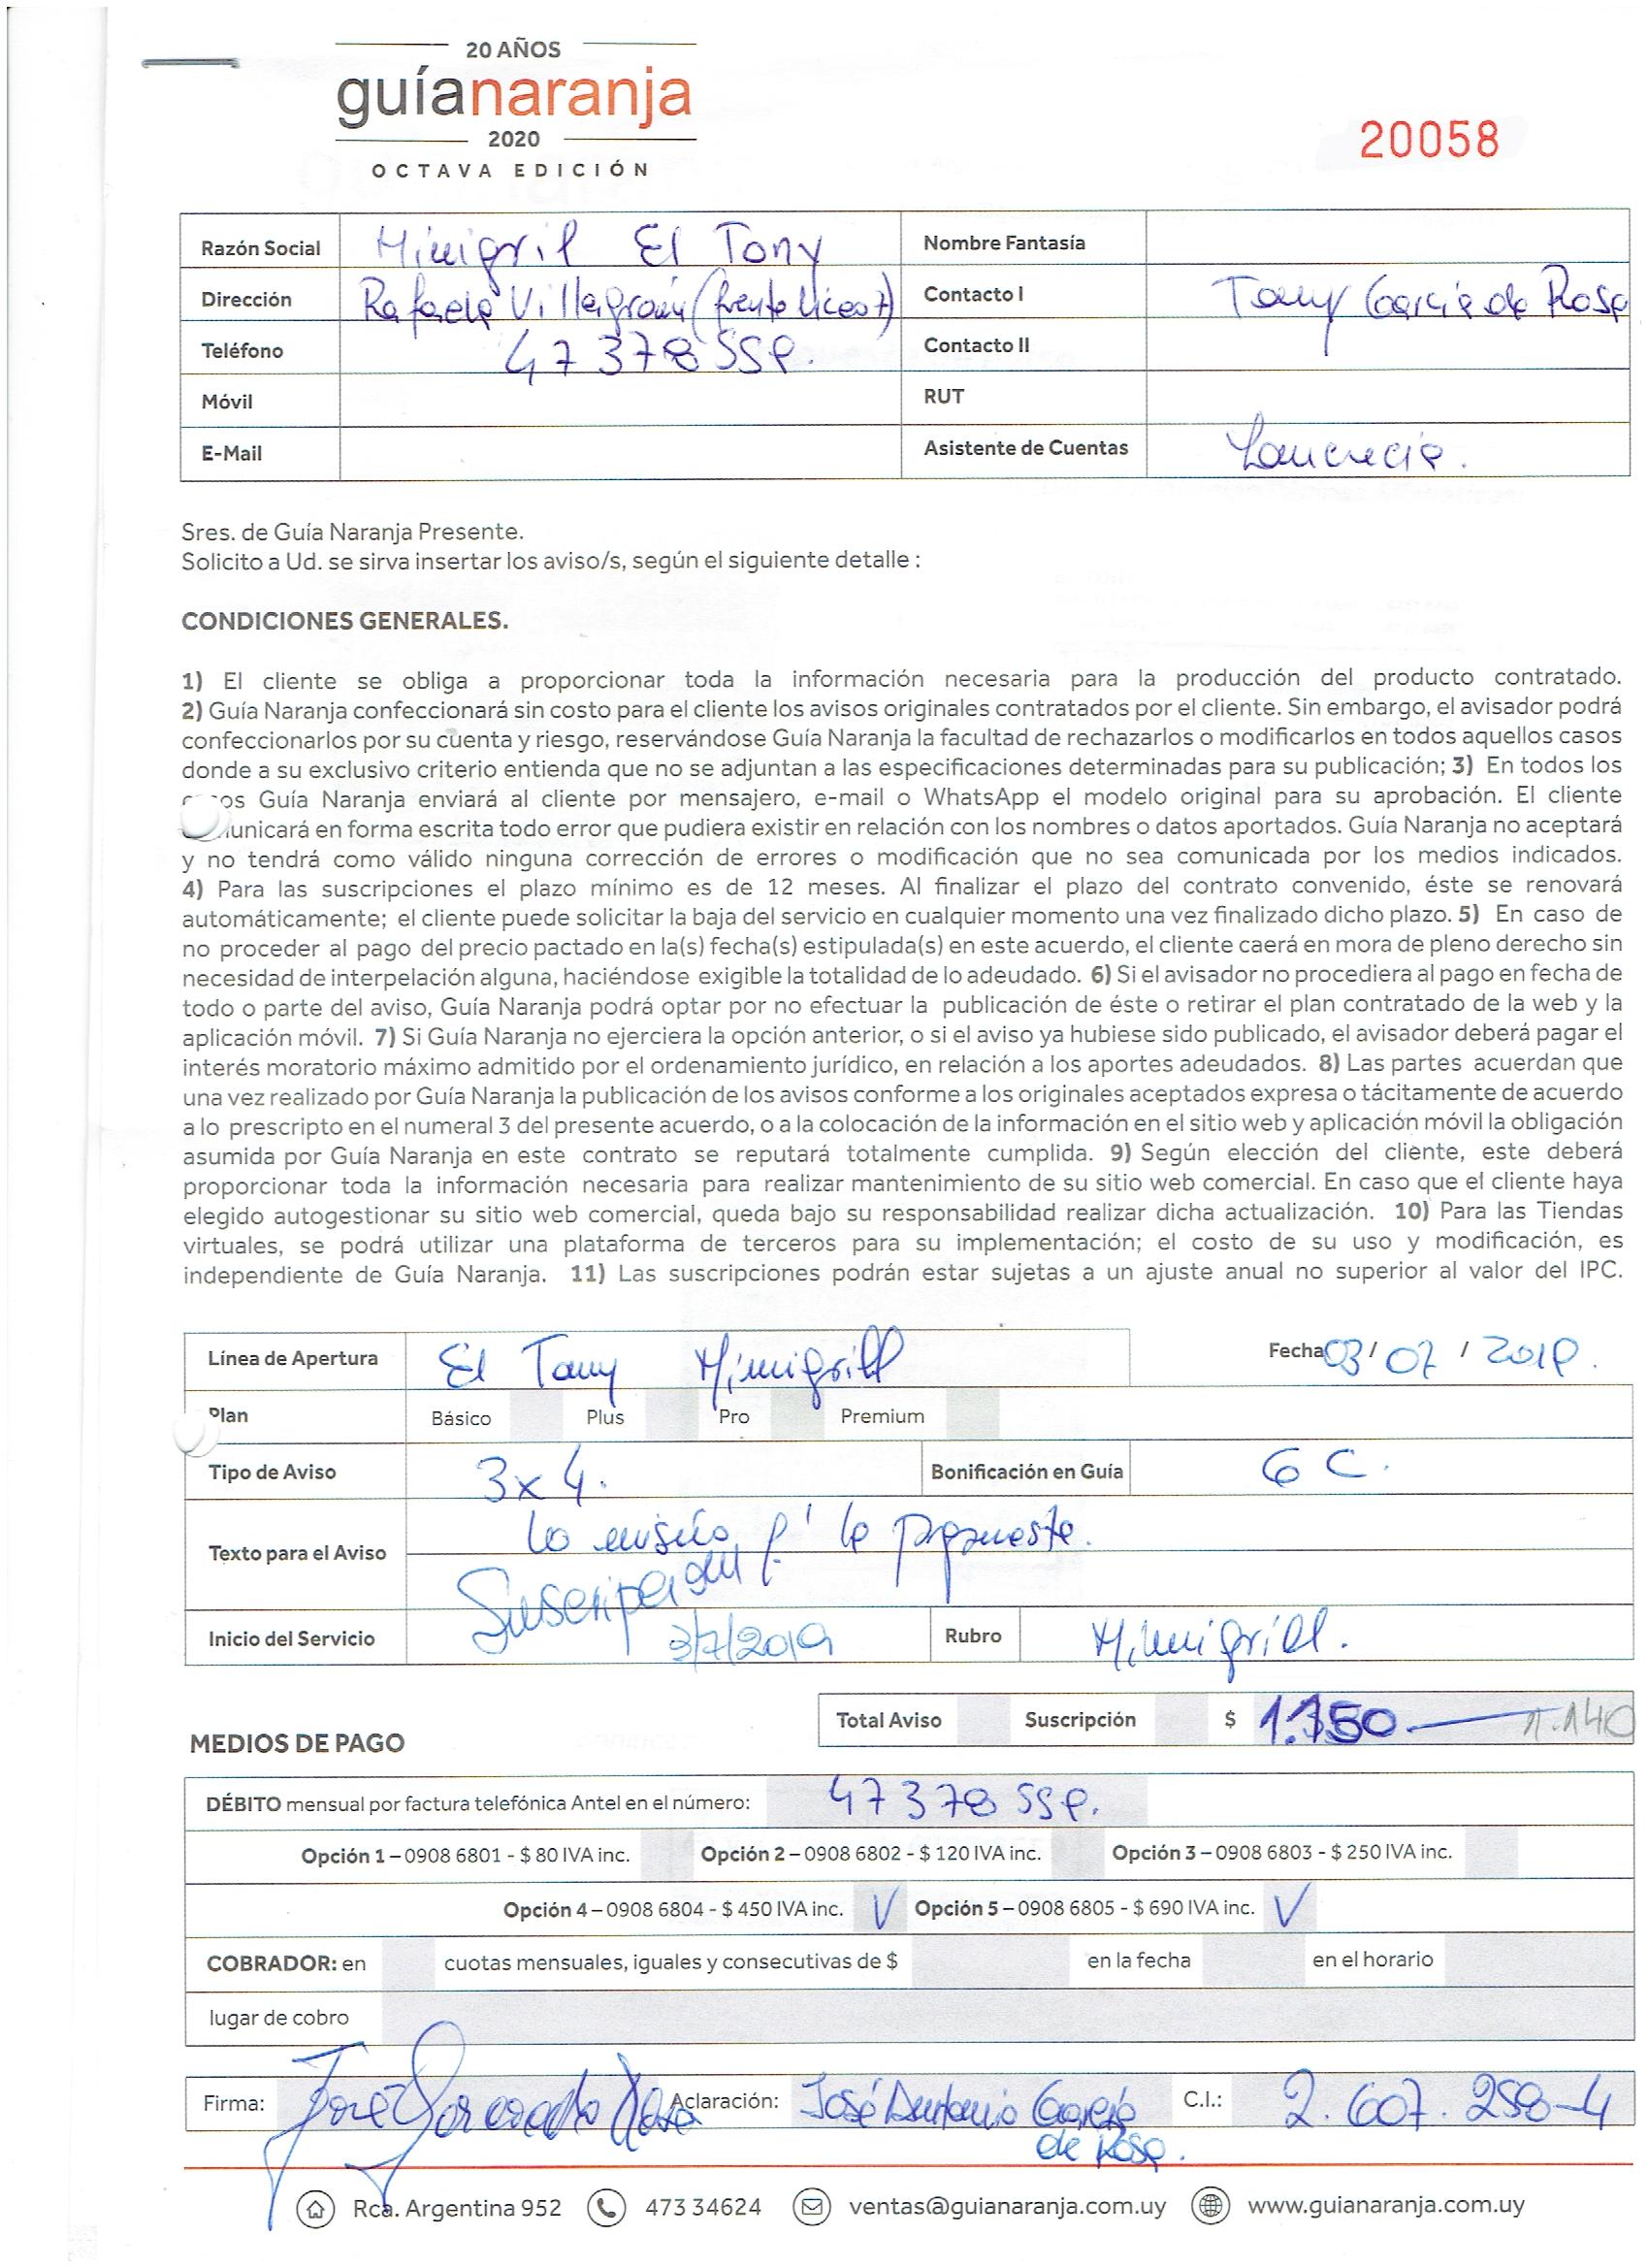 20 AÑOS
guíanaranja
2020
OCTAVA EDICIÓN
20058
Razón Social Minigril El Tony Nombre Fantasía
Dirección Rafaela Villagrán (frente liceo 7) Contacto I Tony García de Rosa
Teléfono 47378559. Contacto II
Móvil RUT
E-Mail Asistente de Cuentas
Sres. de Guía Naranja Presente.
Solicito a Ud. se sirva insertar los aviso/s, según el siguiente detalle :
CONDICIONES GENERALES.
1) El cliente se obliga a proporcionar toda la información necesaria para la producción del producto contratado.
2) Guía Naranja confeccionará sin costo para el cliente los avisos originales contratados por el cliente. Sin embargo, el avisador podrá
confeccionarlos por su cuenta y riesgo, reservándose Guía Naranja la facultad de rechazarlos o modificarlos en todos aquellos casos
donde a su exclusivo criterio entienda que no se adjuntan a las especificaciones determinadas para su publicación; 3) En todos los
Guía Naranja enviará al cliente por mensajero, e-mail o WhatsApp el modelo original para su aprobación. El cliente
unicará en forma escrita todo error que pudiera existir en relación con los nombres o datos aportados. Guía Naranja no aceptará
y no tendrá como válido ninguna corrección de errores o modificación que no sea comunicada por los medios indicados.
4) Para las suscripciones el plazo mínimo es de 12 meses. Al finalizar el plazo del contrato convenido, éste se renovará
automáticamente; el cliente puede solicitar la baja del servicio en cualquier momento una vez finalizado dicho plazo. 5) En caso de
no proceder al pago del precio pactado en la(s) fecha(s) estipulada(s) en este acuerdo, el cliente caerá en mora de pleno derecho sin
necesidad de interpelación alguna, haciéndose exigible la totalidad de lo adeudado. 6) Si el avisador no procediera al pago en fecha de
todo o parte del aviso, Guía Naranja podrá optar por no efectuar la publicación de éste o retirar el plan contratado de la web y la
aplicación móvil. 7) Si Guía Naranja no ejerciera la opción anterior, o si el aviso ya hubiese sido publicado, el avisador deberá pagar el
interés moratorio máximo admitido por el ordenamiento jurídico, en relación a los aportes adeudados. 8) Las partes acuerdan que
una vez realizado por Guía Naranja la publicación de los avisos conforme a los originales aceptados expresa o tácitamente de acuerdo
a lo prescripto en el numeral 3 del presente acuerdo, o a la colocación de la información en el sitio web y aplicación móvil la obligación
asumida por Guía Naranja en este contrato se reputará totalmente cumplida. 9) Según elección del cliente, este deberá
proporcionar toda la información necesaria para realizar mantenimiento de su sitio web comercial. En caso que el cliente haya
elegido autogestionar su sitio web comercial, queda bajo su responsabilidad realizar dicha actualización. 10) Para las Tiendas
virtuales, se podrá utilizar una plataforma de terceros para su implementación; el costo de su uso y modificación, es
independiente de Guía Naranja. 11) Las suscripciones podrán estar sujetas a un ajuste anual no superior al valor del IPC.
Línea de Apertura El Tony Minigrill Fecha 03 / 07 / 2019.
Plan Básico Plus Pro Premium
Tipo de Aviso 3x4. Bonificación en Guía 6 C.
Texto para el Aviso lo la propuesta.
Inicio del Servicio 3/7/2019 Rubro Minigrill.
Total Aviso Suscripción $ 1.140
MEDIOS DE PAGO
DÉBITO mensual por factura telefónica Antel en el número: 47378559.
Opción 1 – 0908 6801 - $ 80 IVA inc. Opción 2 – 0908 6802 - $ 120 IVA inc. Opción 3 – 0908 6803 - $ 250 IVA inc.
Opción 4 – 0908 6804 - $ 450 IVA inc. V Opción 5 – 0908 6805 - $ 690 IVA inc. V
COBRADOR: en cuotas mensuales, iguales y consecutivas de $ en la fecha en el horario
lugar de cobro
Firma: Aclaración: José Antonio García C.I.: 2.607.258-4
de Rosa.
Rca. Argentina 952 473 34624 ventas@guianaranja.com.uy www.guianaranja.com.uy